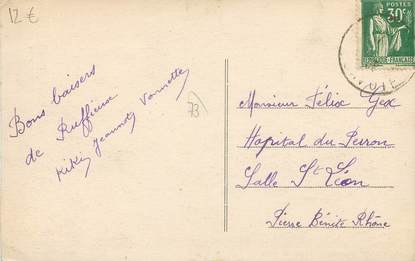 12 €
POSTES
30c
Bons baisers
de Ruffieux
Kiki Jeannot
73
Monsieur Félix Gex
Hopital du Perron
Salle St Léon
Pierre Bénite Rhône